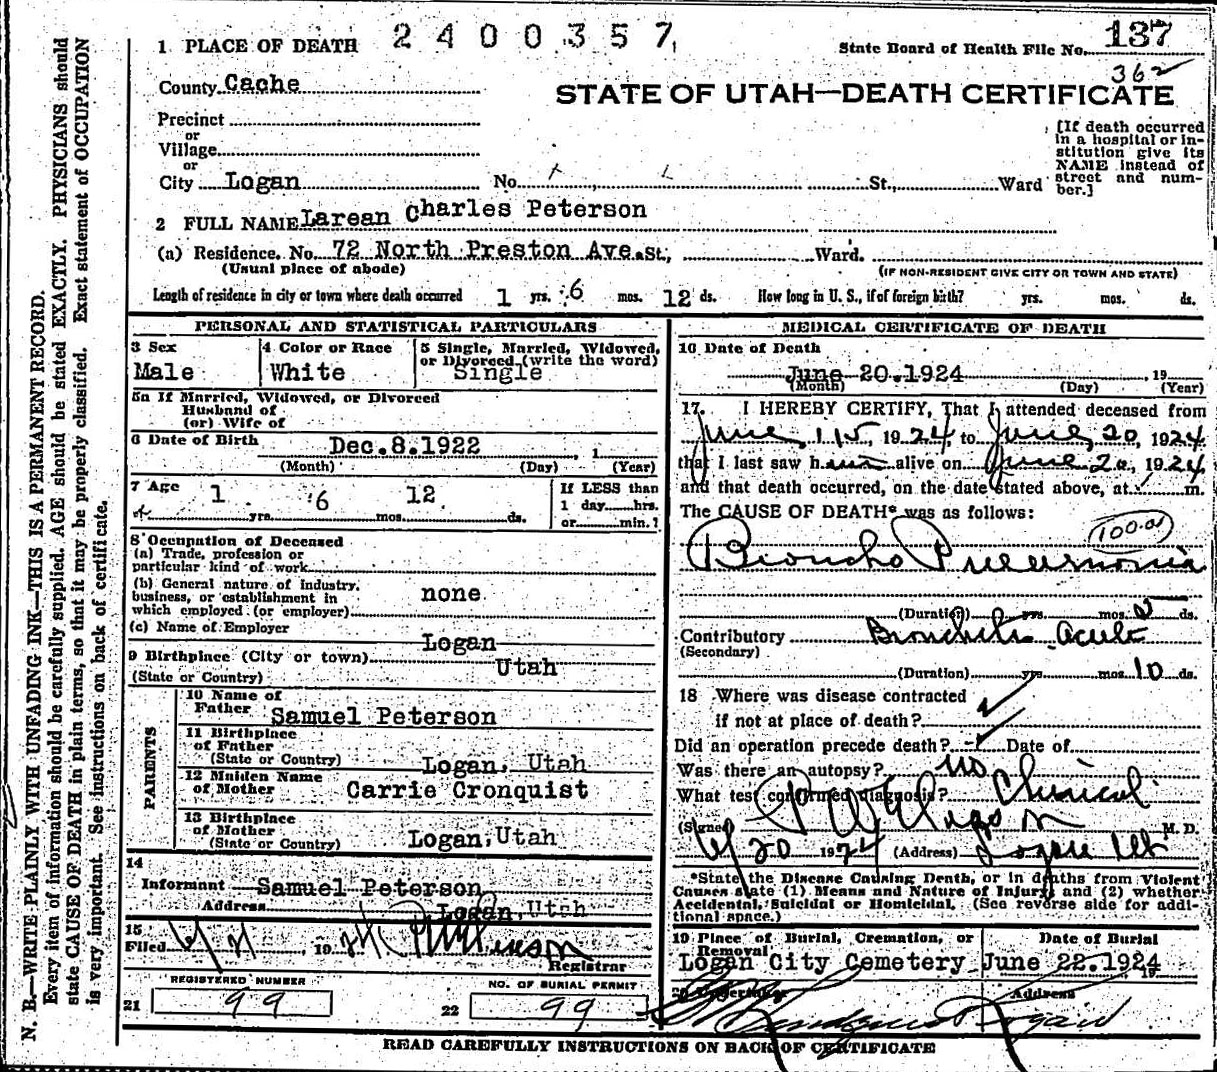 1 PLACE OF DEATH 2400357
State Board of Health File No. 137
362
County Cache
STATE OF UTAH—DEATH CERTIFICATE
Precinct
or
Village
or
City Logan No. St., Ward
[If death occurred
in a hospital or in-
stitution give its
NAME instead of
street and num-
ber.]
2 FULL NAME Larean Charles Peterson
(a) Residence. No. 72 North Preston Ave. St., Ward.
(Usual place of abode) (IF NON-RESIDENT GIVE CITY OR TOWN AND STATE)
Length of residence in city or town where death occurred 1 yrs. 6 mos. 12 ds. How long in U. S., if of foreign birth? yrs. mos. ds.
PERSONAL AND STATISTICAL PARTICULARS
3 Sex
Male
4 Color or Race
White
5 Single, Married, Widowed,
or Divorced (write the word)
Single
5a If Married, Widowed, or Divorced
Husband of
(or) Wife of
6 Date of Birth Dec.8.1922, 1
(Month) (Day) (Year)
7 Age 1 6 12
yrs. mos. ds.
If LESS than
1 day hrs.
or min.?
8 Occupation of Deceased
(a) Trade, profession or
particular kind of work
(b) General nature of industry,
business, or establishment in
which employed (or employer) none
(c) Name of Employer
9 Birthplace (City or town) Logan
(State or Country) Utah
PARENTS
10 Name of
Father Samuel Peterson
11 Birthplace
of Father
(State or Country) Logan, Utah
12 Maiden Name
of Mother Carrie Cronquist
13 Birthplace
of Mother
(State or Country) Logan, Utah
14
Informant Samuel Peterson
Address Logan, Utah
15
Filed 19
Registrar
REGISTERED NUMBER
21 99
NO. OF BURIAL PERMIT
22 99
MEDICAL CERTIFICATE OF DEATH
16 Date of Death
June 20.1924, 19
(Month) (Day) (Year)
17. I HEREBY CERTIFY, That I attended deceased from
June 15, 1924, to June 20, 1924
that I last saw him alive on June 20, 1924
and that death occurred, on the date stated above, at m.
The CAUSE OF DEATH* was as follows:
100-a
Broncho Pneumonia
(Duration) yrs. mos. 5 ds.
Contributory Bronchitis acute
(Secondary)
(Duration) yrs. mos. 10 ds.
18 Where was disease contracted
if not at place of death?
Did an operation precede death? Date of
Was there an autopsy? no
What test confirmed diagnosis? Clinical
(Signed) M. D.
6/20 1924 (Address) Logan Ut
*State the Disease Causing Death, or in deaths from Violent
Causes state (1) Means and Nature of Injury; and (2) whether
Accidental, Suicidal or Homicidal. (See reverse side for addi-
tional space.)
19 Place of Burial, Cremation, or
Removal
Logan City Cemetery
Date of Burial
June 22.1924 19
20 Undertaker Address
Logan
READ CAREFULLY INSTRUCTIONS ON BACK OF CERTIFICATE
N. B.—WRITE PLAINLY WITH UNFADING INK—THIS IS A PERMANENT RECORD.
Every item of information should be carefully supplied. AGE should be stated EXACTLY. PHYSICIANS should
state CAUSE OF DEATH in plain terms, so that it may be properly classified. Exact statement of OCCUPATION
is very important. See instructions on back of certificate.